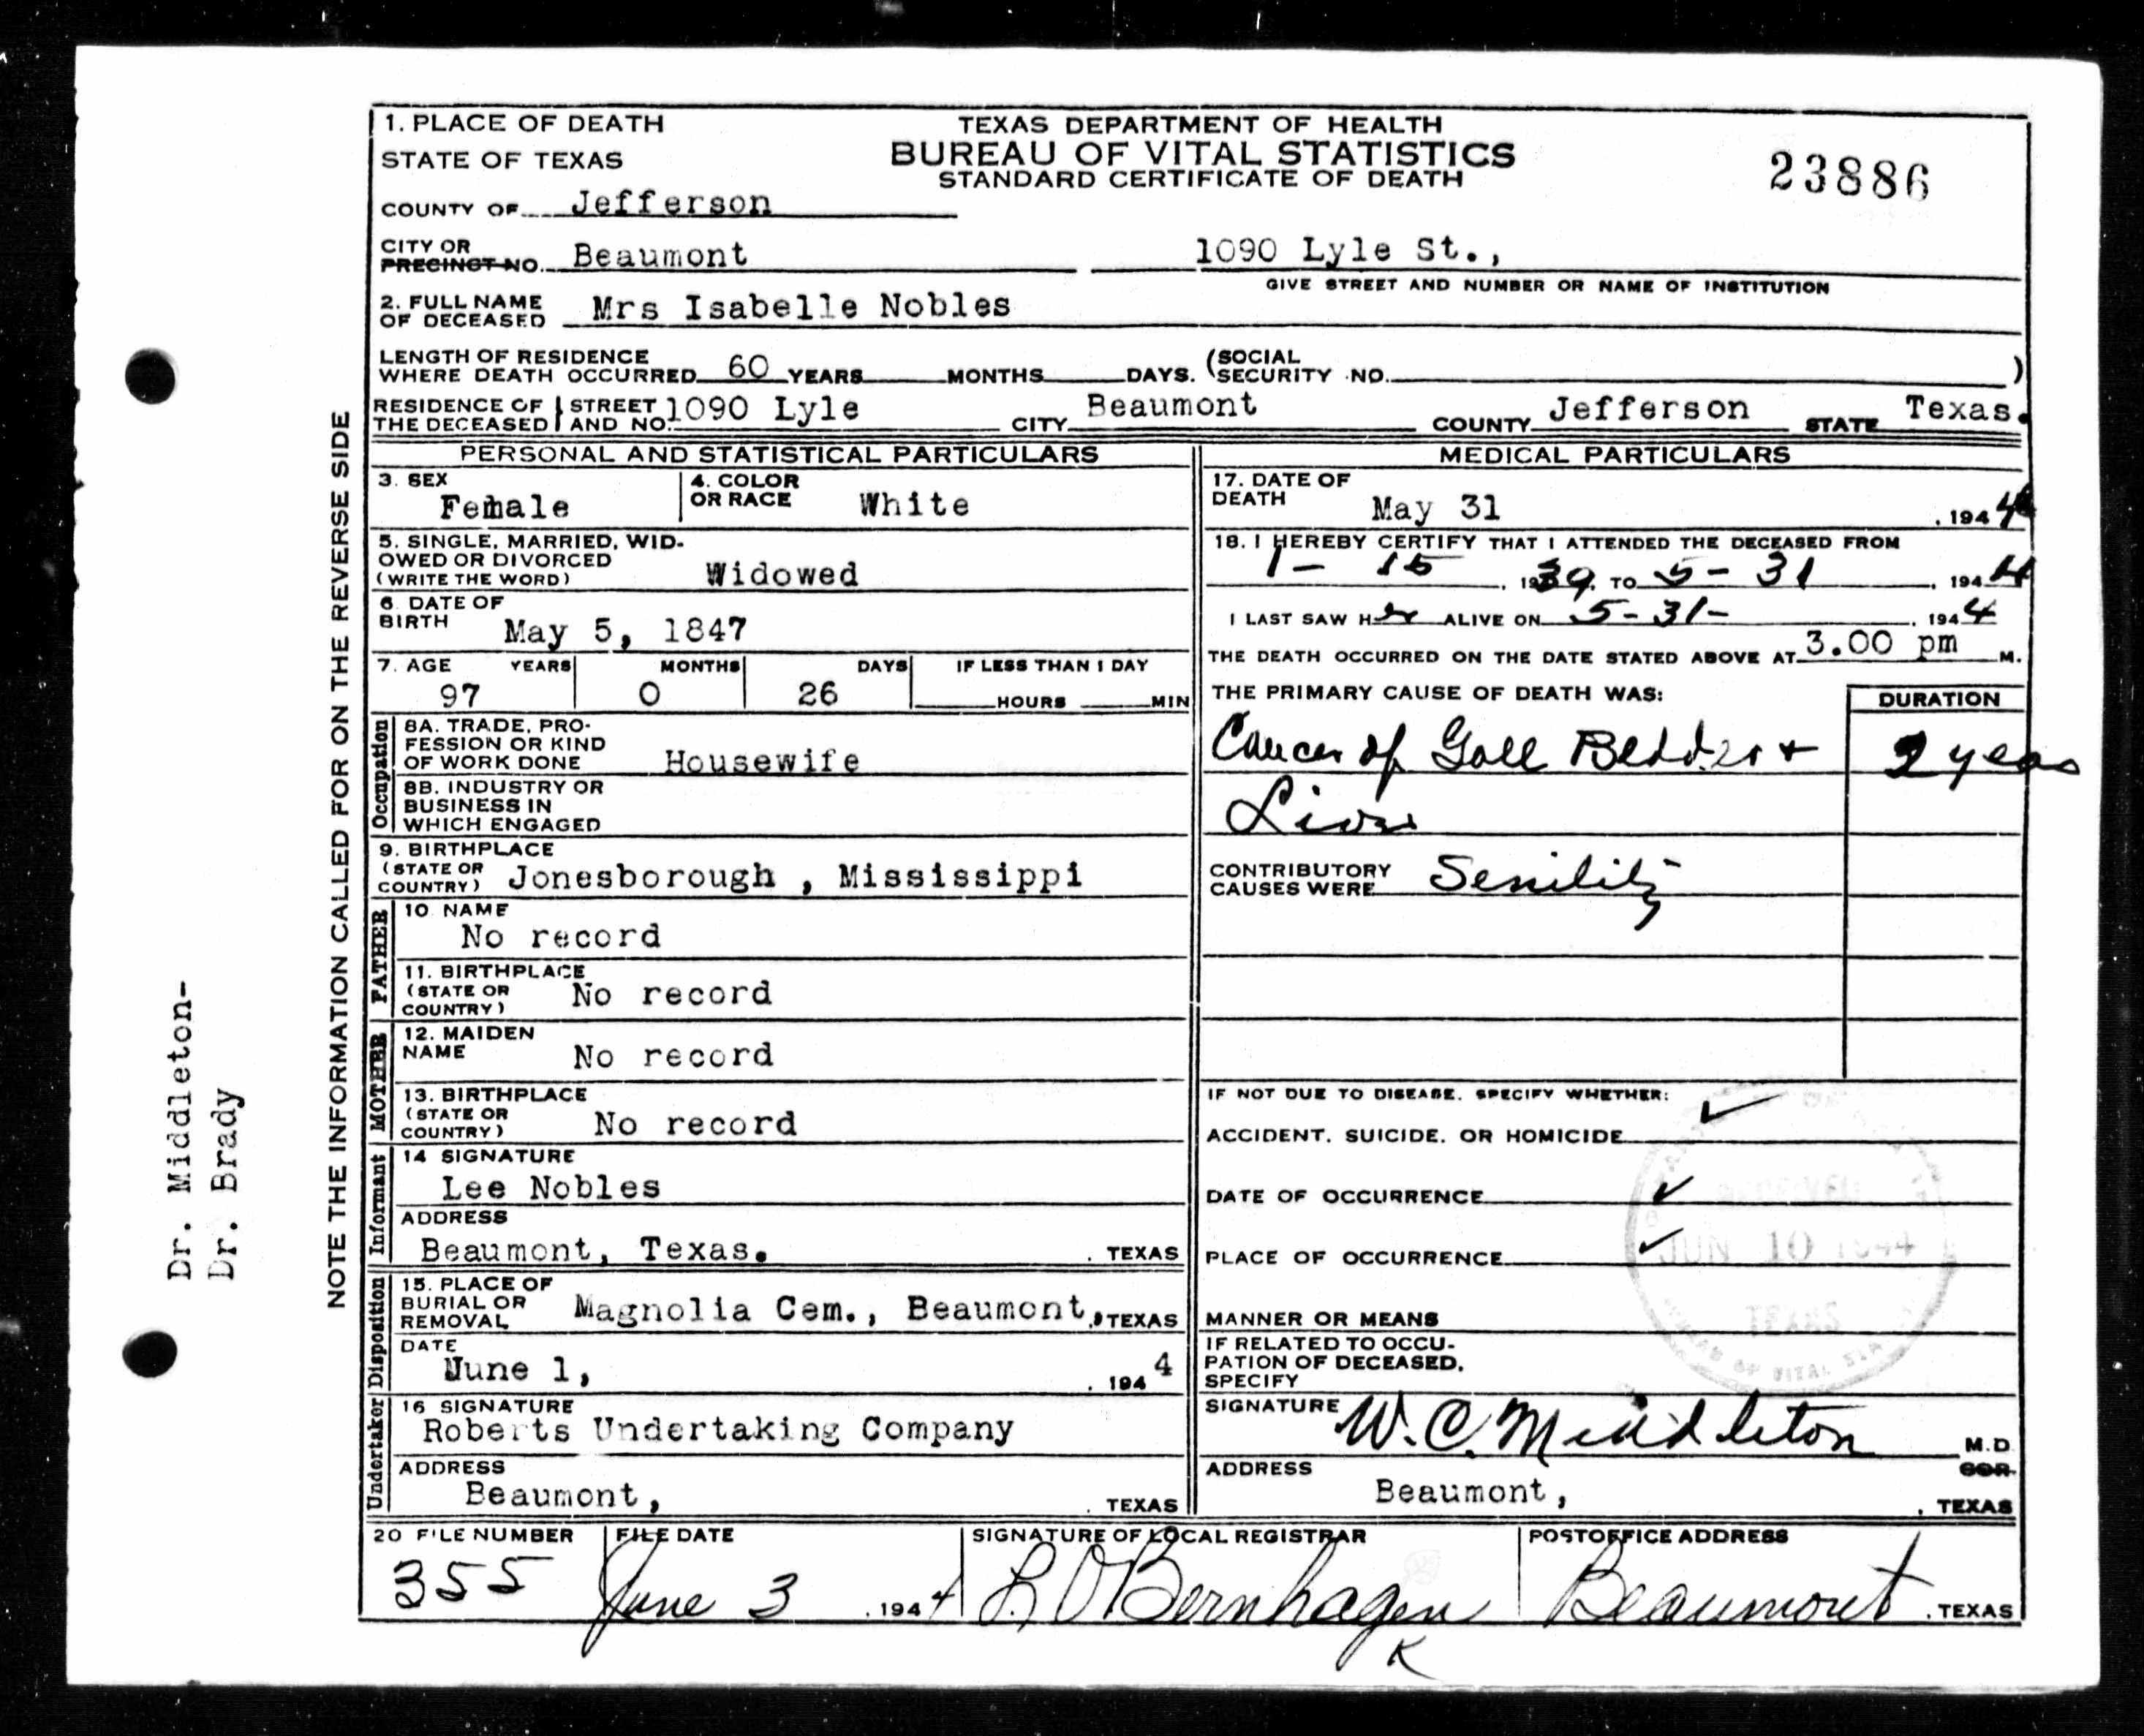 1. PLACE OF DEATH
STATE OF TEXAS
COUNTY OF Jefferson
TEXAS DEPARTMENT OF HEALTH
BUREAU OF VITAL STATISTICS
STANDARD CERTIFICATE OF DEATH
23886
CITY OR
PRECINCT NO. Beaumont
1090 Lyle St.,
GIVE STREET AND NUMBER OR NAME OF INSTITUTION
2. FULL NAME
OF DECEASED Mrs Isabelle Nobles
LENGTH OF RESIDENCE
WHERE DEATH OCCURRED 60 YEARS MONTHS DAYS. (SOCIAL
SECURITY NO. )
RESIDENCE OF
THE DECEASED
STREET
AND NO. 1090 Lyle CITY Beaumont COUNTY Jefferson STATE Texas.
PERSONAL AND STATISTICAL PARTICULARS
3. SEX
Female
4. COLOR
OR RACE White
5. SINGLE, MARRIED, WID-
OWED OR DIVORCED
(WRITE THE WORD) Widowed
6. DATE OF
BIRTH May 5, 1847
7. AGE YEARS MONTHS DAYS IF LESS THAN 1 DAY
97 0 26 HOURS MIN
Occupation
8A. TRADE, PRO-
FESSION OR KIND
OF WORK DONE Housewife
8B. INDUSTRY OR
BUSINESS IN
WHICH ENGAGED
9. BIRTHPLACE
(STATE OR
COUNTRY) Jonesborough , Mississippi
FATHER
10 NAME
No record
11. BIRTHPLACE
(STATE OR
COUNTRY) No record
MOTHER
12. MAIDEN
NAME No record
13. BIRTHPLACE
(STATE OR
COUNTRY) No record
Informant
14 SIGNATURE
Lee Nobles
ADDRESS
Beaumont, Texas. . TEXAS
Disposition
15. PLACE OF
BURIAL OR
REMOVAL Magnolia Cem., Beaumont, TEXAS
DATE
June 1, , 194 4
Undertaker
16 SIGNATURE
Roberts Undertaking Company
ADDRESS
Beaumont, . TEXAS
MEDICAL PARTICULARS
17. DATE OF
DEATH May 31 , 194 4
18. I HEREBY CERTIFY THAT I ATTENDED THE DECEASED FROM
1- 15 , 1939, TO 5- 31 , 194 4
I LAST SAW H er ALIVE ON 5-31- , 194 4
THE DEATH OCCURRED ON THE DATE STATED ABOVE AT 3.00 pm M.
THE PRIMARY CAUSE OF DEATH WAS: DURATION
Cancer of Gall Bladder + 2 years
Liver
CONTRIBUTORY
CAUSES WERE Senility
IF NOT DUE TO DISEASE, SPECIFY WHETHER:
ACCIDENT, SUICIDE, OR HOMICIDE ✓
DATE OF OCCURRENCE ✓
PLACE OF OCCURRENCE ✓
JUN 10 1944
TEXAS
MANNER OR MEANS
IF RELATED TO OCCU-
PATION OF DECEASED,
SPECIFY
SIGNATURE W. C. Middleton M.D.
COR.
ADDRESS
Beaumont, , TEXAS
20 FILE NUMBER FILE DATE SIGNATURE OF LOCAL REGISTRAR POSTOFFICE ADDRESS
355 June 3 , 194 4 L O Bernhagen Beaumont , TEXAS
K
NOTE THE INFORMATION CALLED FOR ON THE REVERSE SIDE
Dr. Middleton-
Dr. Brady